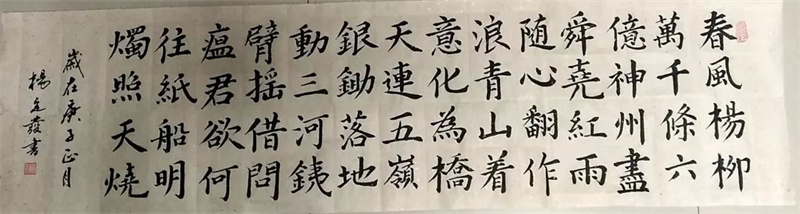 春風楊柳
萬千條六
億神州盡
舜堯紅雨
随心翻作
浪青山着
意化為橋
天連五嶺
銀鋤落地
動三河銕
臂摇借問
瘟君欲何
往紙船明
燭照天燒
歲在庚子正月
楊發書